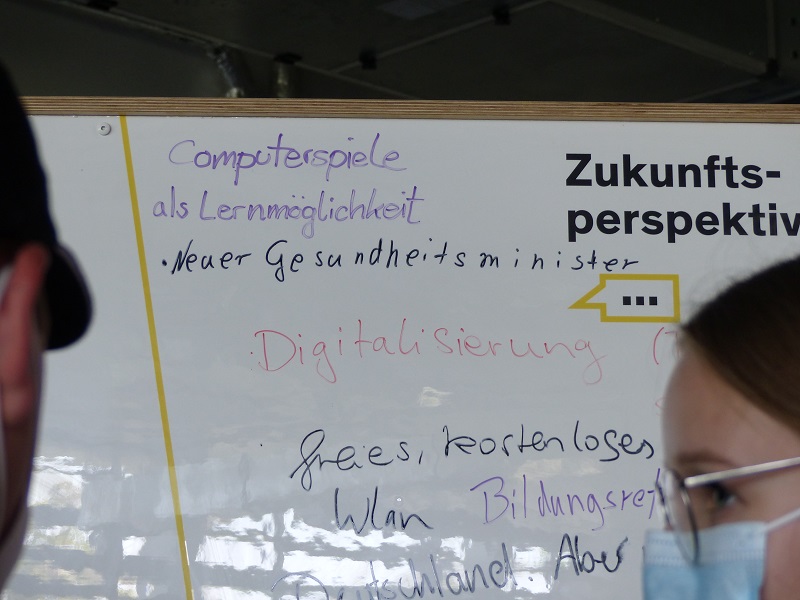 Computerspiele
als Lernmöglichkeit
• Neuer Gesundheitsminister
Zukunfts-
perspektiv
...
Digitalisierung
freies, kostenloses
Wlan
Bildungsref
Deutschland. Aber